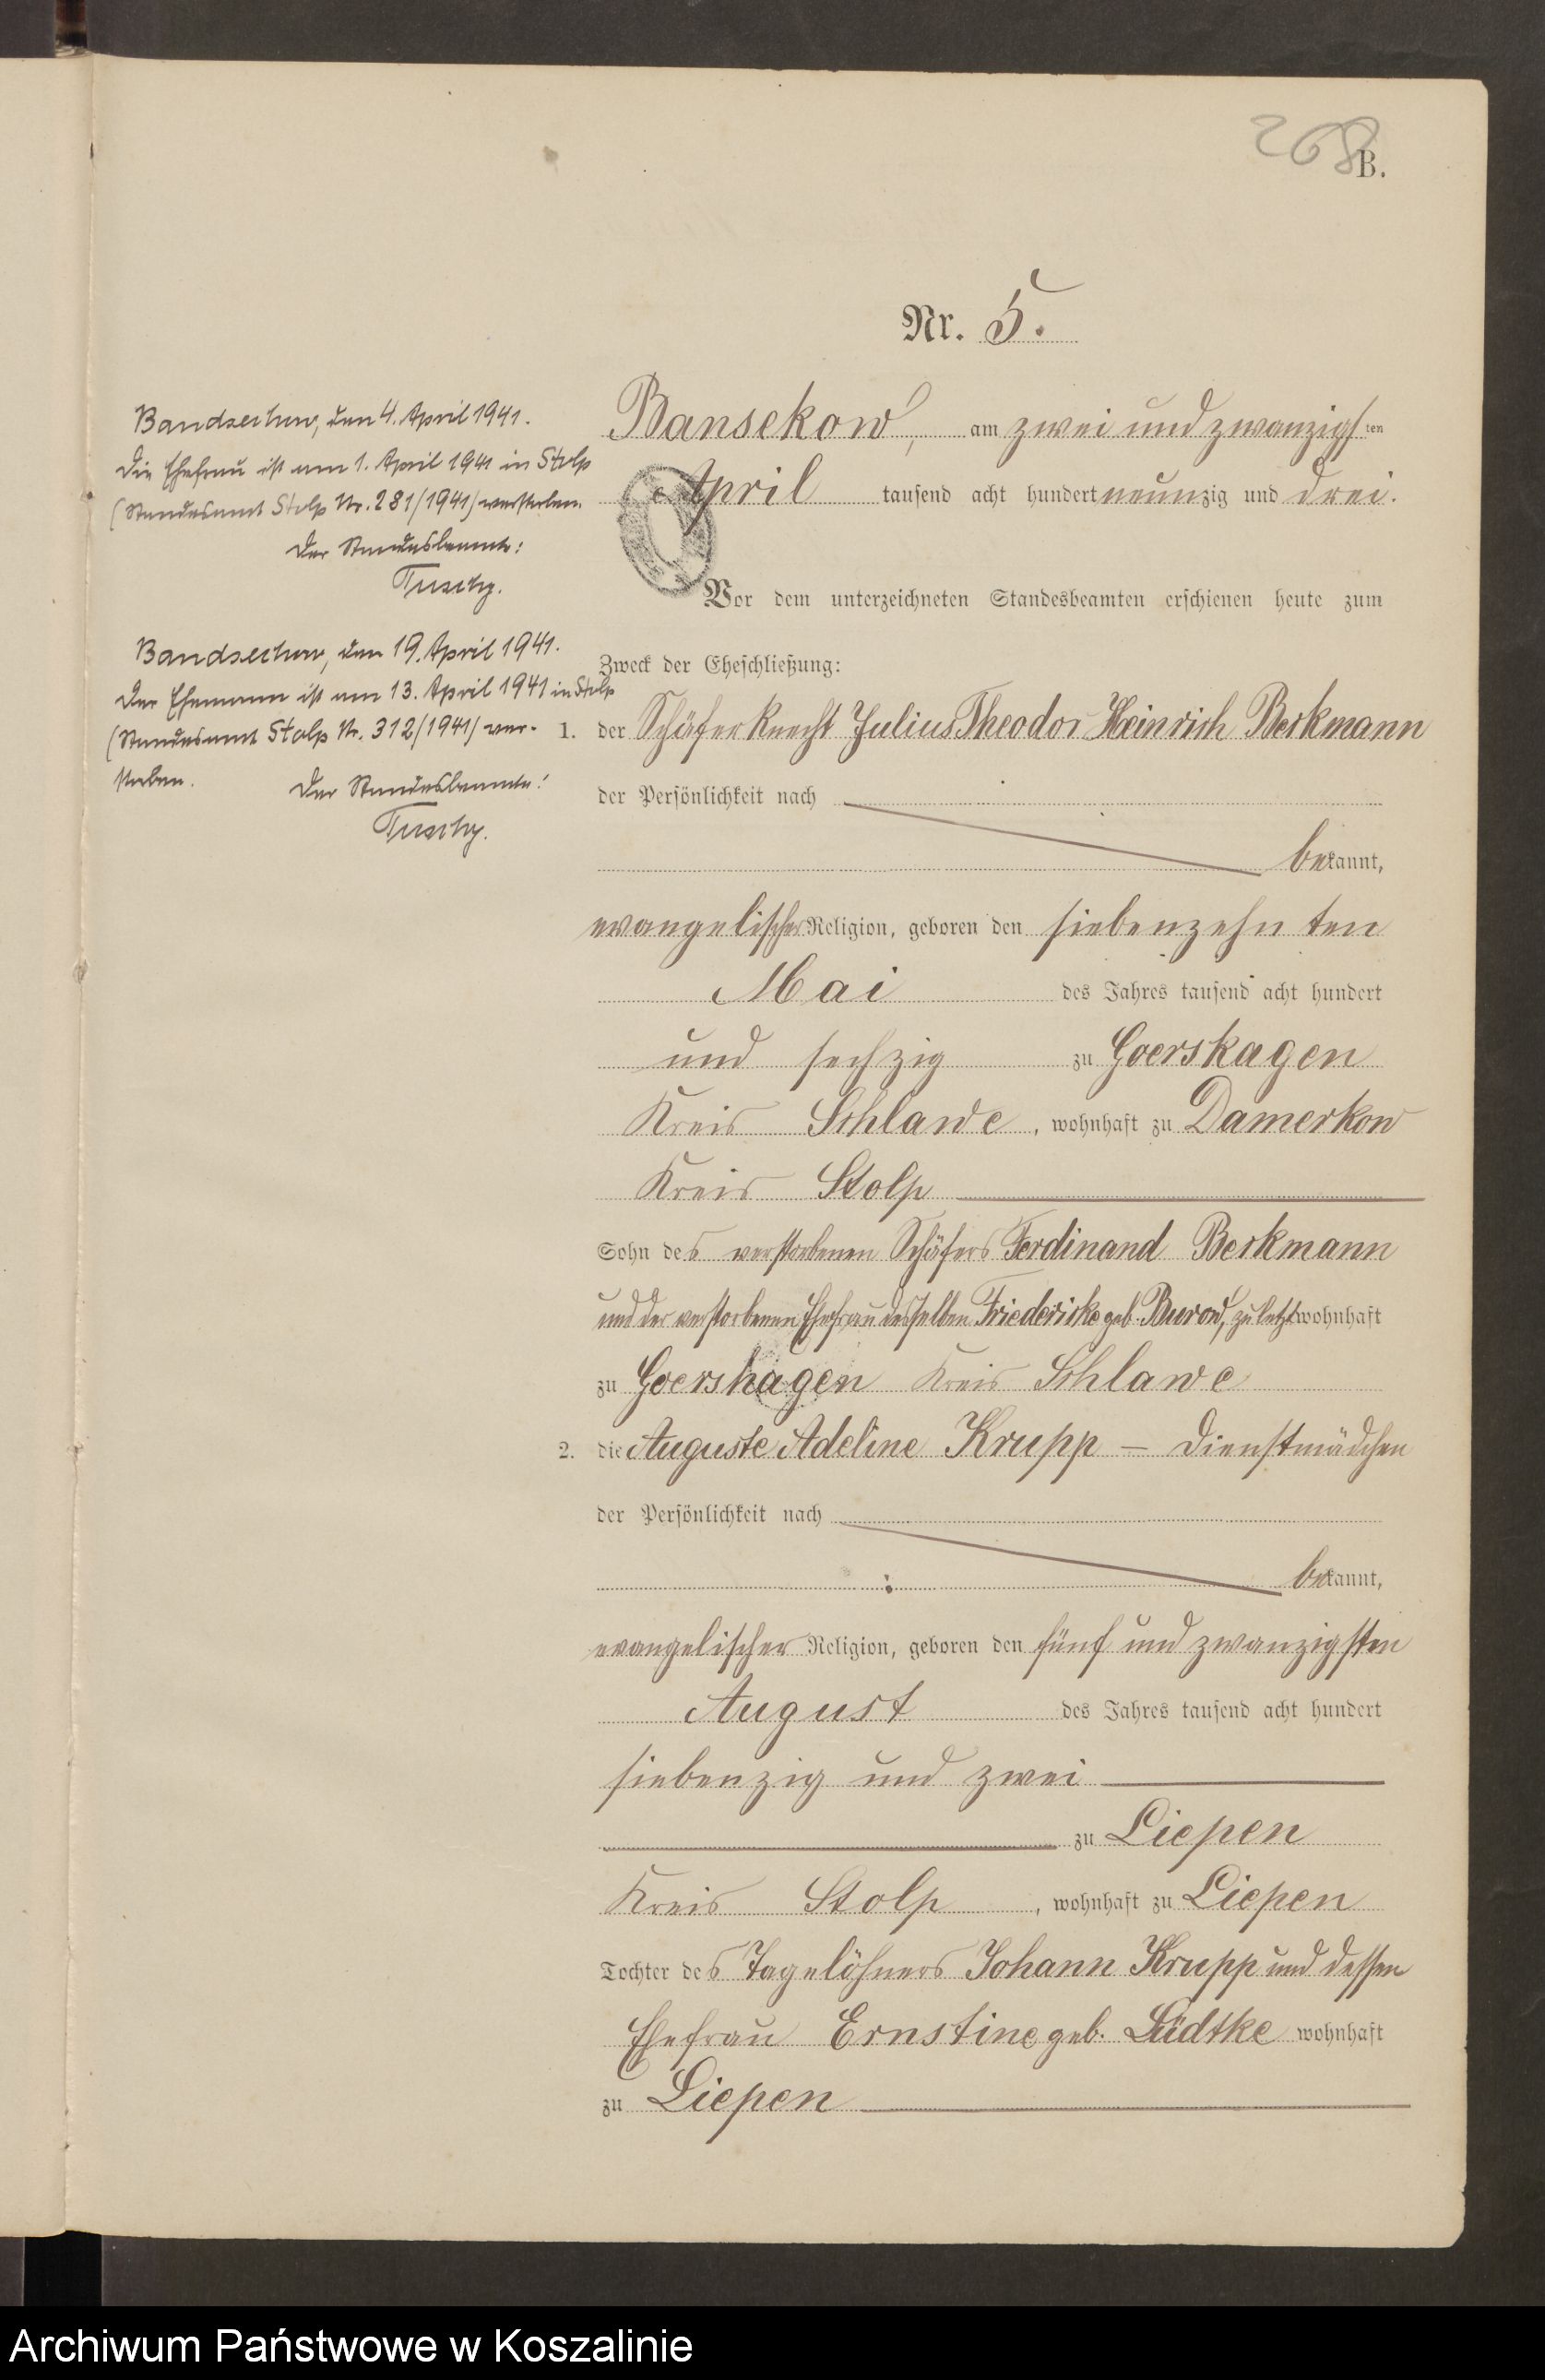 268
B.
Nr. 5.
Bansekow, am zwei und zwanzigsten
April tausend acht hundert neunzig und drei.
Vor dem unterzeichneten Standesbeamten erschienen heute zum
Zweck der Eheschließung:
1. der Schäferknecht Julius Theodor Heinrich Berkmann
der Persönlichkeit nach
bekannt,
evangelischer Religion, geboren den siebenzehn ten
Mai des Jahres tausend acht hundert
und sechzig zu Goerskagen
Kreis Schlawe, wohnhaft zu Damerkow
Kreis Stolp
Sohn des verstorbenen Schäfers Ferdinand Berkmann
und der verstorbenen Ehefrau desselben Friedericke geb. Burow, zuletzt wohnhaft
zu Goershagen Kreis Schlawe
2. die Auguste Adeline Krupp – Dienstmädchen
der Persönlichkeit nach
bekannt,
evangelischer Religion, geboren den fünf und zwanzigsten
August des Jahres tausend acht hundert
siebenzig und zwei
zu Liepen
Kreis Stolp, wohnhaft zu Liepen
Tochter des Tagelöhners Johann Krupp und dessen
Ehefrau Ernstine geb. Lüdtke wohnhaft
zu Liepen
Bandsechow, den 4. April 1941.
Die Ehefrau ist am 1. April 1941 in Stolp
(Standesamt Stolp Nr. 281/1941) verstorben.
Der Standesbeamte:
Tuschy.
Bandsechow, den 19. April 1941.
Der Ehemann ist am 13. April 1941 in Stolp
(Standesamt Stolp Nr. 312/1941) ver-
storben.
Der Standesbeamte:
Tuschy.
Archiwum Państwowe w Koszalinie